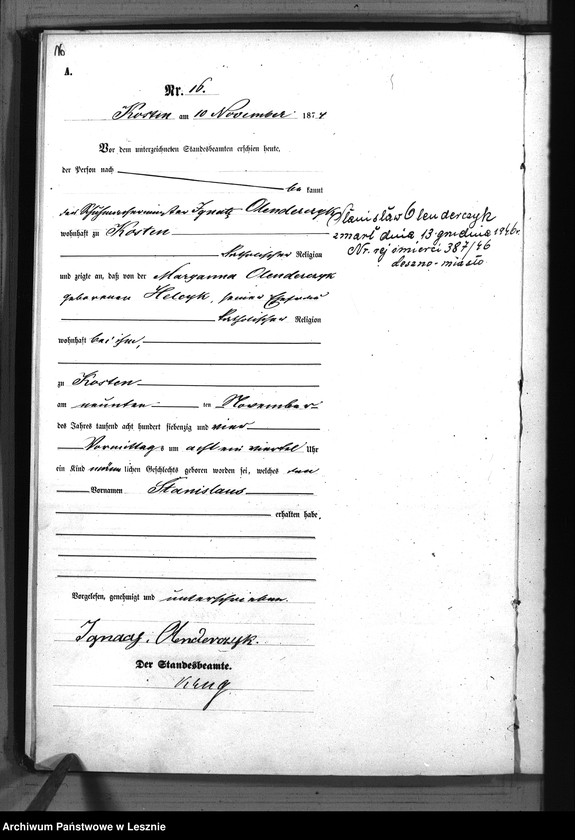 16
A.
Nr. 16.
Kosten am 10 November 1874
Vor dem unterzeichneten Standesbeamten erschien heute,
der Person nach
be kannt
der Schuhmachermeister Ignatz Olenderczyk
wohnhaft zu Kosten
katholischer Religion
und zeigte an, daß von der Maryanna Olenderczyk
geborenen Helcyk, seiner Ehefrau
katholischer Religion
wohnhaft bei ihm,
zu Kosten
am neunten ten November
des Jahres tausend acht hundert siebenzig und vier
Vormittags um acht ein viertel Uhr
ein Kind männlichen Geschlechts geboren worden sei, welches den
Vornamen Stanislaus
erhalten habe,
Vorgelesen, genehmigt und unterschrieben.
Ignacy Olenderczyk.
Der Standesbeamte.
Krug
Stanisław Olenderczyk
zmarł dnia 13 grudnia 1946 r.
Nr. rej śmierci 387/46
Leszno - miasto
Archiwum Państwowe w Lesznie